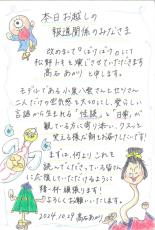 本日お越しの
報道関係のみなさま
改めまして「ばけばけ」にて
松野トキを演じさせていただきます
髙石あかりと申します。
モデルである小泉八雲さんとセツさん
二人だけの世界感も大切にし、愛おしい
言語から生まれる「怪談」と「日常」が
観ている方に寄りそい、クスッと
笑える様な朝をお届けしたいです!
まずは、何よりこれを
読んでくださっている皆さんに
応援していただけるように
精一杯頑張ります!
よろしくお願いいたします。
2024.10.29 髙石あかり